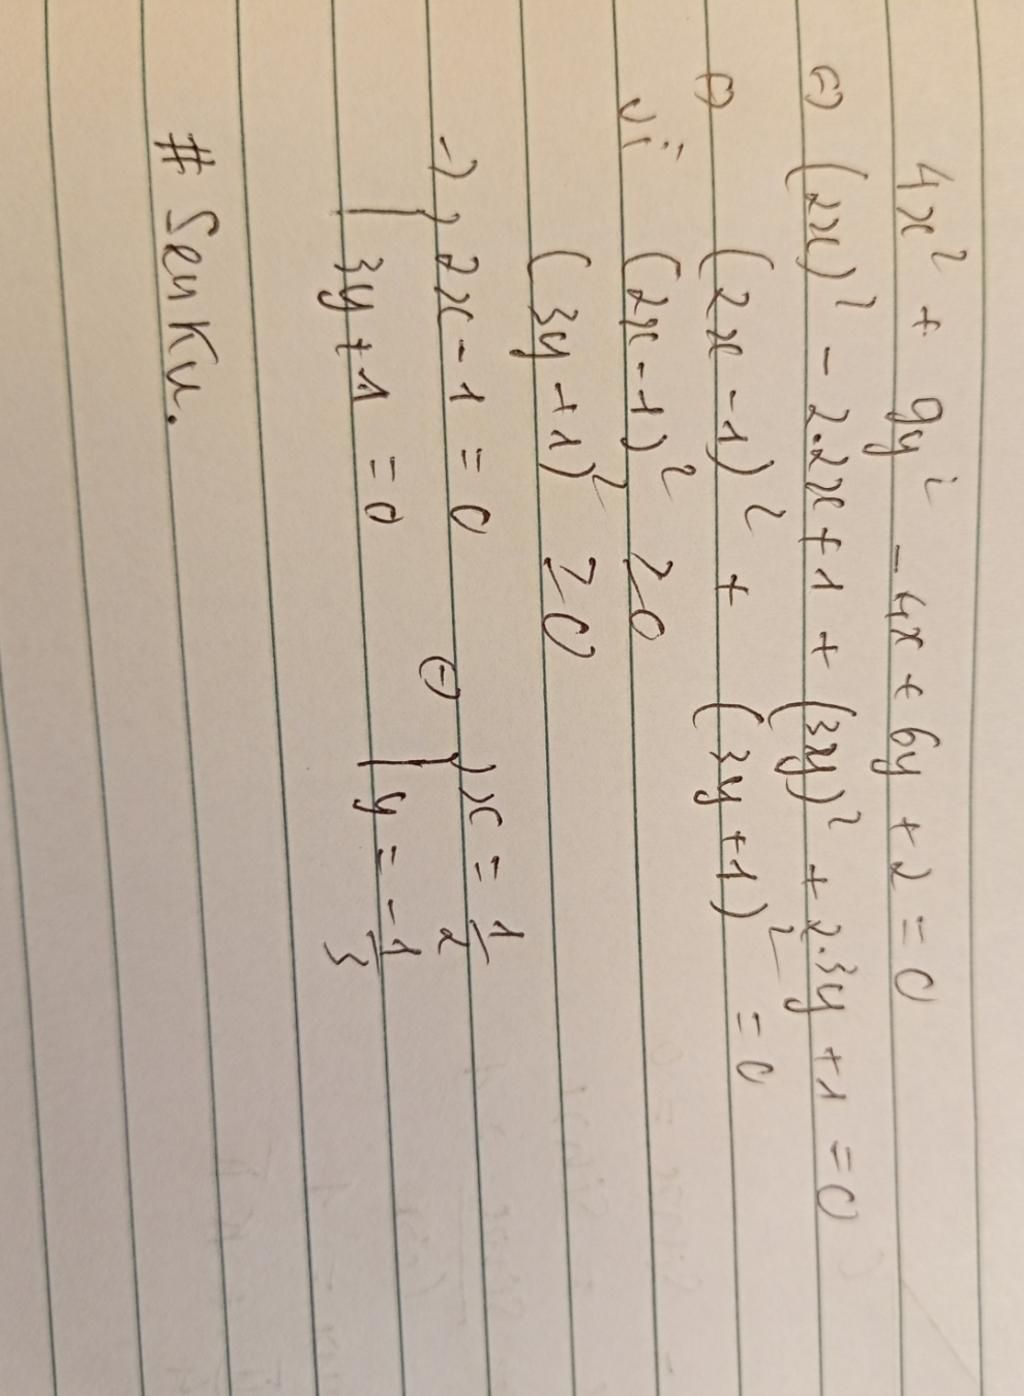 4x² + 9y² - 4x + 6y + 2 = 0
⇔ (2x)² - 2.2x + 1 + (3y)² + 2.3y + 1 = 0
⇔ (2x - 1)² + (3y + 1)² = 0
vì (2x - 1)² ≥ 0
(3y + 1)² ≥ 0
→ { 2x - 1 = 0 ⇔ { x = 1/2
3y + 1 = 0 y = -1/3
# SenKu.